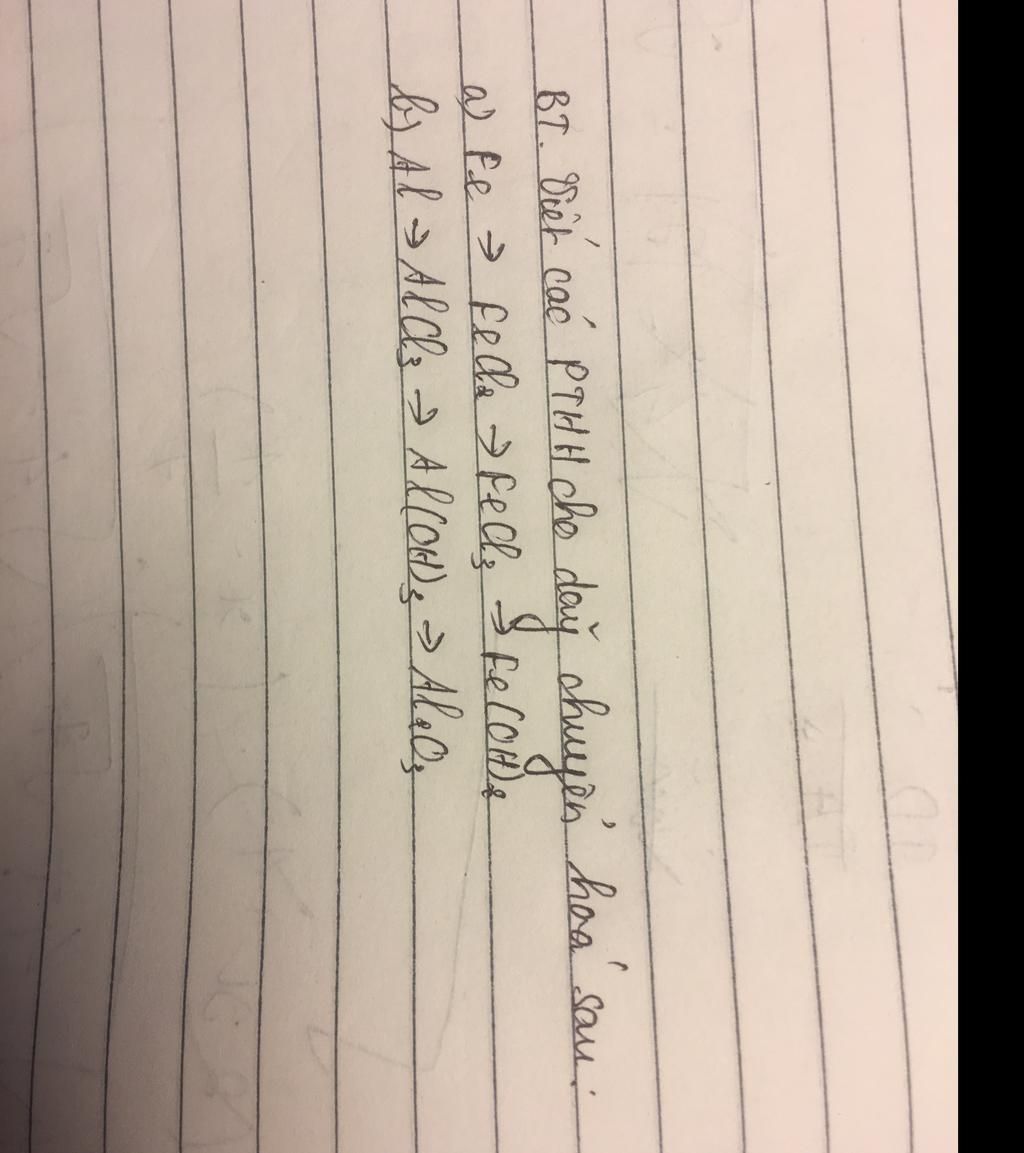 BT. Viết các PTHH cho dãy chuyển hoá sau:
a) Fe → FeCl₂ → FeCl₃ → Fe(OH)₂
b) Al → AlCl₃ → Al(OH)₃ → Al₂O₃